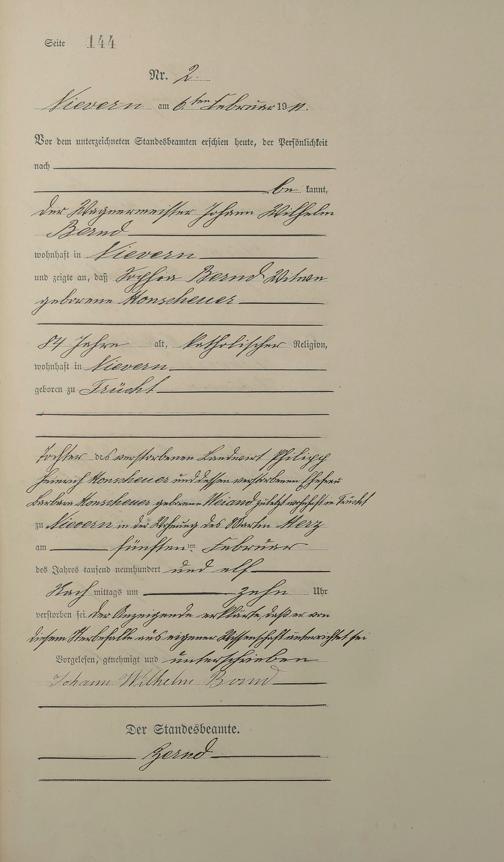 Seite 144
Nr. 2
Nievern am 6ten Februar 1911.
Vor dem unterzeichneten Standesbeamten erschien heute, der Persönlichkeit
nach
be kannt,
der Wagnermeister Johann Wilhelm
Bernd
wohnhaft in Nievern
und zeigte an, daß Sophia Bernd Witwe
geborene Honscheuer
84 Jahre alt, katholischer Religion,
wohnhaft in Nievern
geboren zu Frücht
Tochter des verstorbenen Landwirt Philipp
Heinrich Honscheuer und dessen verstorbenen Ehefrau
Barbara Honscheuer geborene Weiand zuletzt wohnhaft in Frücht
zu Nievern in der Wohnung des Martin Merz
am fünften Februar
des Jahres tausend neunhundert und elf
Nach mittags um zehn Uhr
verstorben sei. Der Anzeigende erklärte, daß er von
diesem Sterbefalle aus eigener Wissenschaft unterrichtet sei
Vorgelesen, genehmigt und unterschrieben
Johann Wilhelm Bernd
Der Standesbeamte.
Bernd